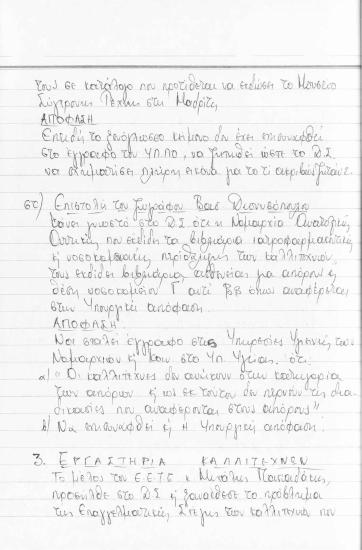 τους σε κατάλογο που προτίθεται να εκδώσει το Μουσείο
Σύγχρονης Τέχνης στη Μαδρίτη
ΑΠΟΦΑΣΗ
Επειδή το ξενόγλωσσο κείμενο δεν έχει επισυναφθεί
στο έγγραφο του ΥΠ.ΠΟ, να ζητηθεί ώστε το Δ.Σ
να σχηματίσει πλήρη εικόνα για το τι ακριβώς ζητάνε.
στ) Επιστολή του ζωγράφου Βασ Διονυσόπουλου
κάνει γνωστό στο Δ.Σ ότι η Νομαρχία Ανατολικής
Αττικής που εκδίδει τα βιβλιάρια ιατροφαρμακευτικής
ή νοσοκομειακής περίθαλψης των καλλιτεχνών,
τους εκδίδει βιβλιάρια ασθενείας για απόρους
θέση νοσοκομείου Γ αντί ΒΒ όπως αναφέρεται
στην Υπουργική απόφαση.
ΑΠΟΦΑΣΗ
Να σταλεί έγγραφο στις Υπηρεσίες Υγιεινής των
Νομαρχιών ή και στο Υπ. Υγείας. ότι
α) "Οι καλλιτέχνες δεν ανήκουν στην κατηγορία
των απόρων ή ως εκ τούτου δεν περνούν τις δια-
δικασίες που αναφέρονται στους απόρους"
β) Να επισυναφθεί ή η Υπουργική απόφαση.
3. ΕΡΓΑΣΤΗΡΙΑ ΚΑΛΛΙΤΕΧΝΩΝ
Το μέλος του Ε.Ε.Τ.Ε κ Μιχάλης Παπαδάκης,
προσήλθε στο Δ.Σ ή ξαναέθεσε το πρόβλημα
της Επαγγελματικής Στέγης των καλλιτεχνών που